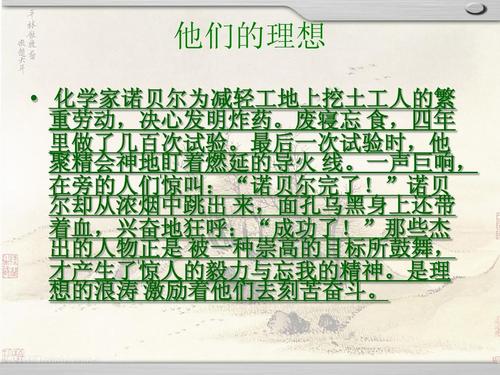 他们的理想
• 化学家诺贝尔为减轻工地上挖土工人的繁
重劳动，决心发明炸药。废寝忘 食，四年
里做了几百次试验。最后一次试验时，他
聚精会神地盯着燃延的导火 线。一声巨响，
在旁的人们惊叫：“诺贝尔完了！”诺贝
尔却从浓烟中跳出 来，面孔乌黑身上还带
着血，兴奋地狂呼：“成功了！”那些杰
出的人物正是 被一种崇高的目标所鼓舞，
才产生了惊人的毅力与忘我的精神。是理
想的浪涛 激励着他们去刻苦奋斗。